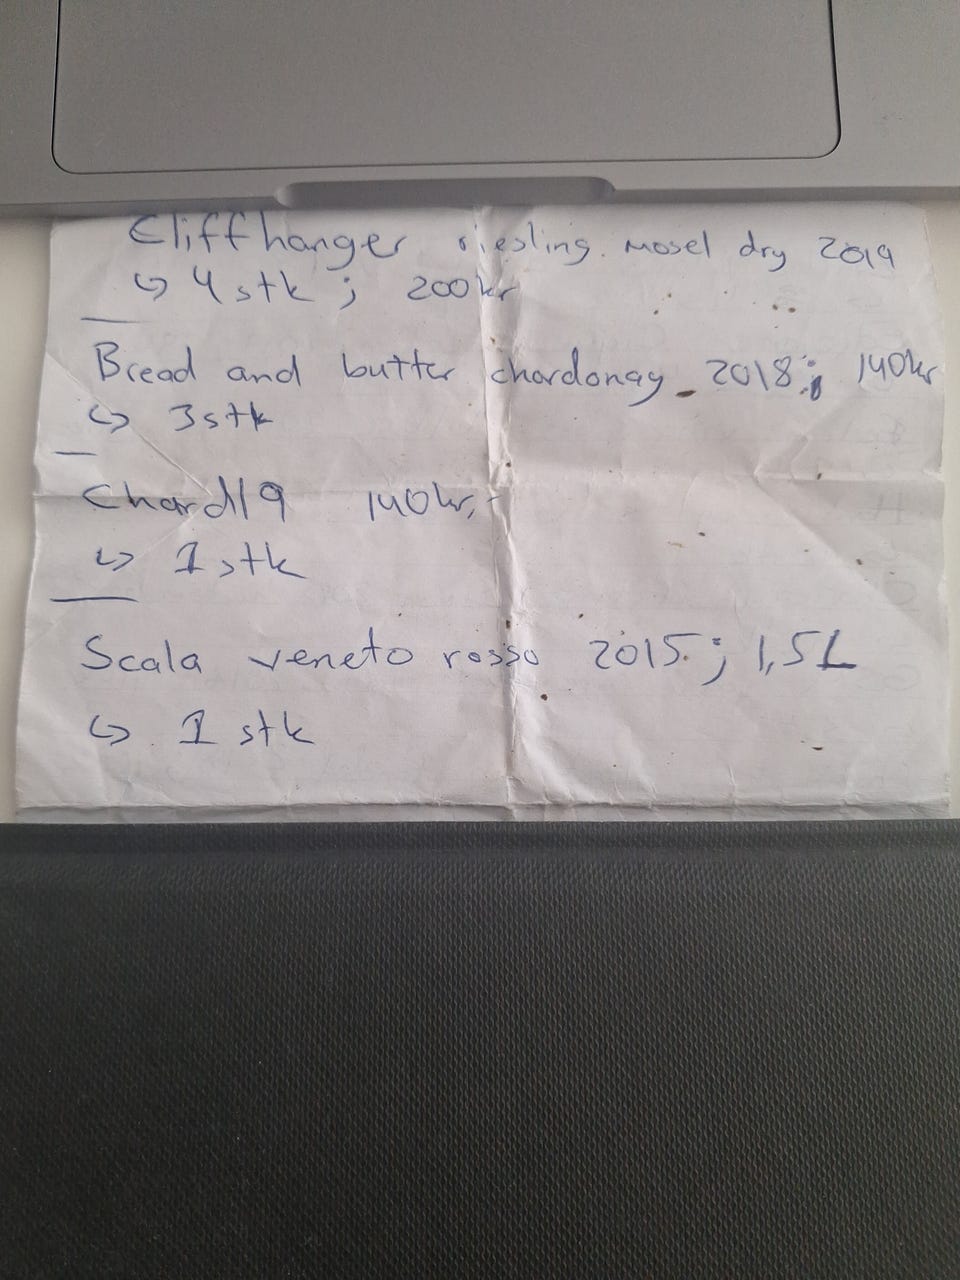 Cliffhanger riesling. mosel dry 2019
↳ 4 stk ; 200kr
Bread and butter chardonay 2018; 140kr
↳ 3stk
Chard/19 140kr,-
↳ 1 stk
Scala veneto rosso 2015; 1,5L
↳ 1 stk